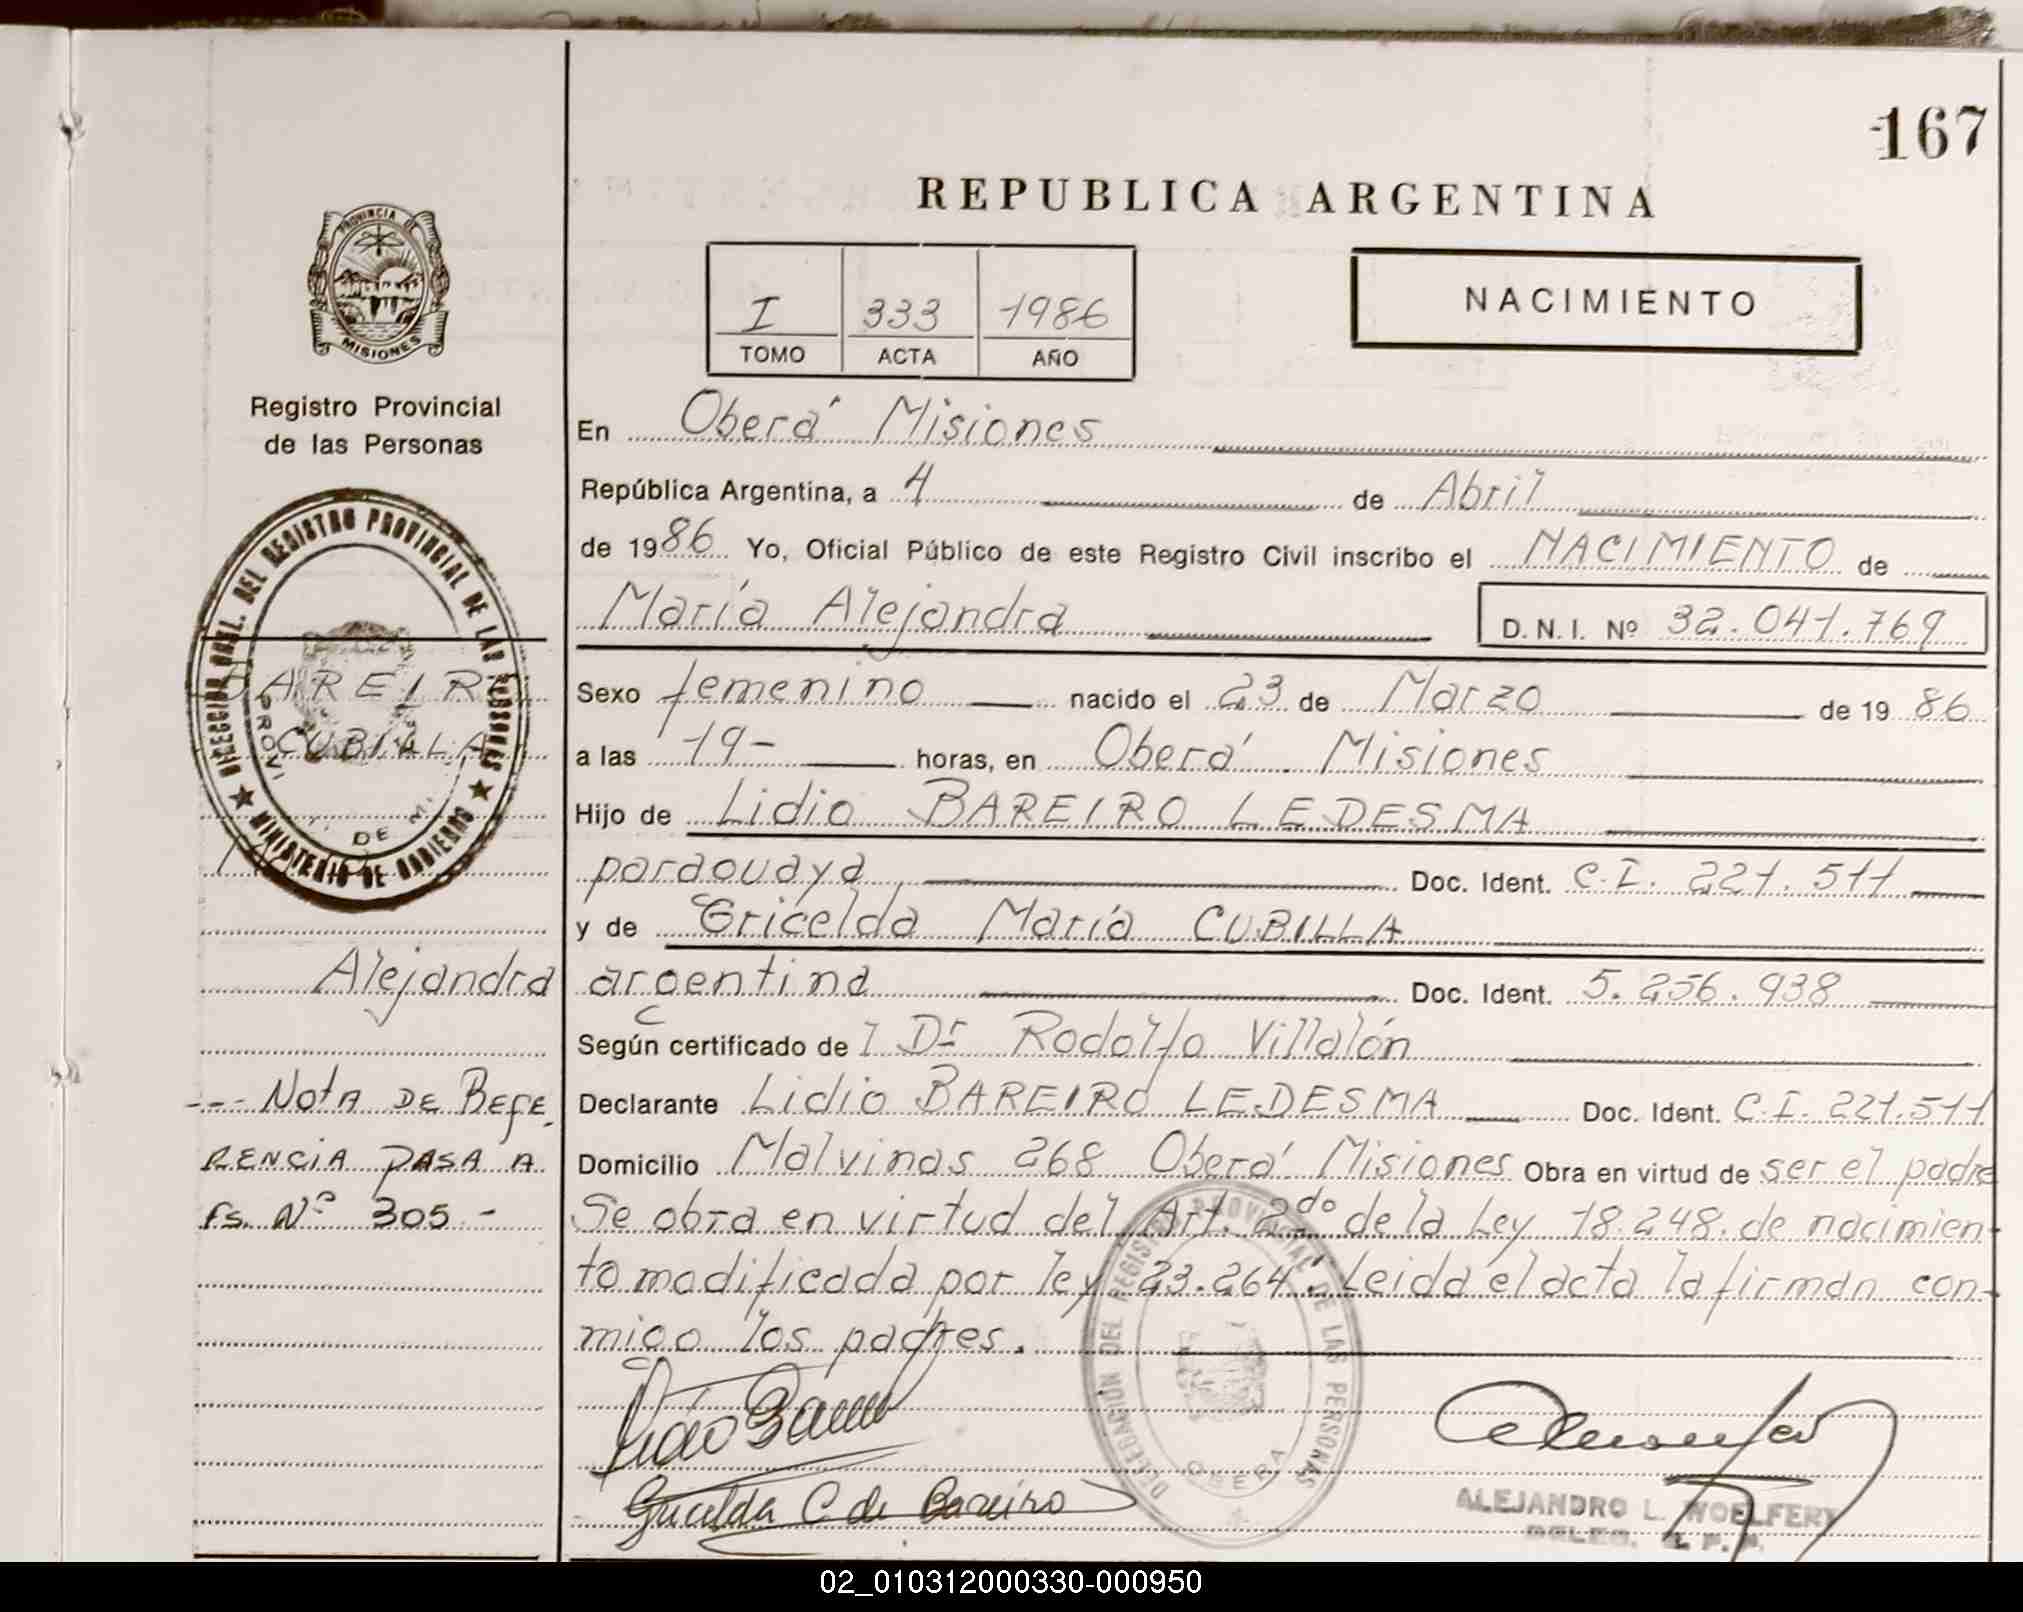 167
REPUBLICA ARGENTINA
PROVINCIA DE
MISIONES
Registro Provincial
de las Personas
I 333 1986
TOMO ACTA AÑO
NACIMIENTO
En Oberá Misiones
República Argentina, a 4 de Abril
de 1986 Yo, Oficial Público de este Registro Civil inscribo el NACIMIENTO de
María Alejandra D.N.I. Nº 32.041.769
Sexo femenino nacido el 23 de Marzo de 1986
a las 19- horas, en Oberá Misiones
Hijo de Lidio BAREIRO LEDESMA
paraguaya Doc. Ident. C.I. 221.511
y de Gricelda María CUBILLA
argentina Doc. Ident. 5.256.938
Según certificado del Dr Rodolfo Villalón
Declarante Lidio BAREIRO LEDESMA Doc. Ident. C.I. 221.511
Domicilio Malvinas 268 Oberá Misiones Obra en virtud de ser el padre
Se obra en virtud del Art. 2do de la Ley 18.248. de nacimien-
to modificada por ley 23.264. Leida el acta la firman con-
migo los padres.
DIRECCION GRAL. DEL REGISTRO PROVINCIAL DE LAS PERSONAS
MINISTERIO DE GOBIERNO
CUBILLA
Alejandra
--- NOTA DE REFE-
RENCIA PASA A
fs. Nº 305.-
DELEGACIÓN DEL REGISTRO PROVINCIAL DE LAS PERSONAS
OBERA
Gricelda C de Bareiro
ALEJANDRO L. WOELFERT
DELEG. R. P. P.
02_010312000330-000950